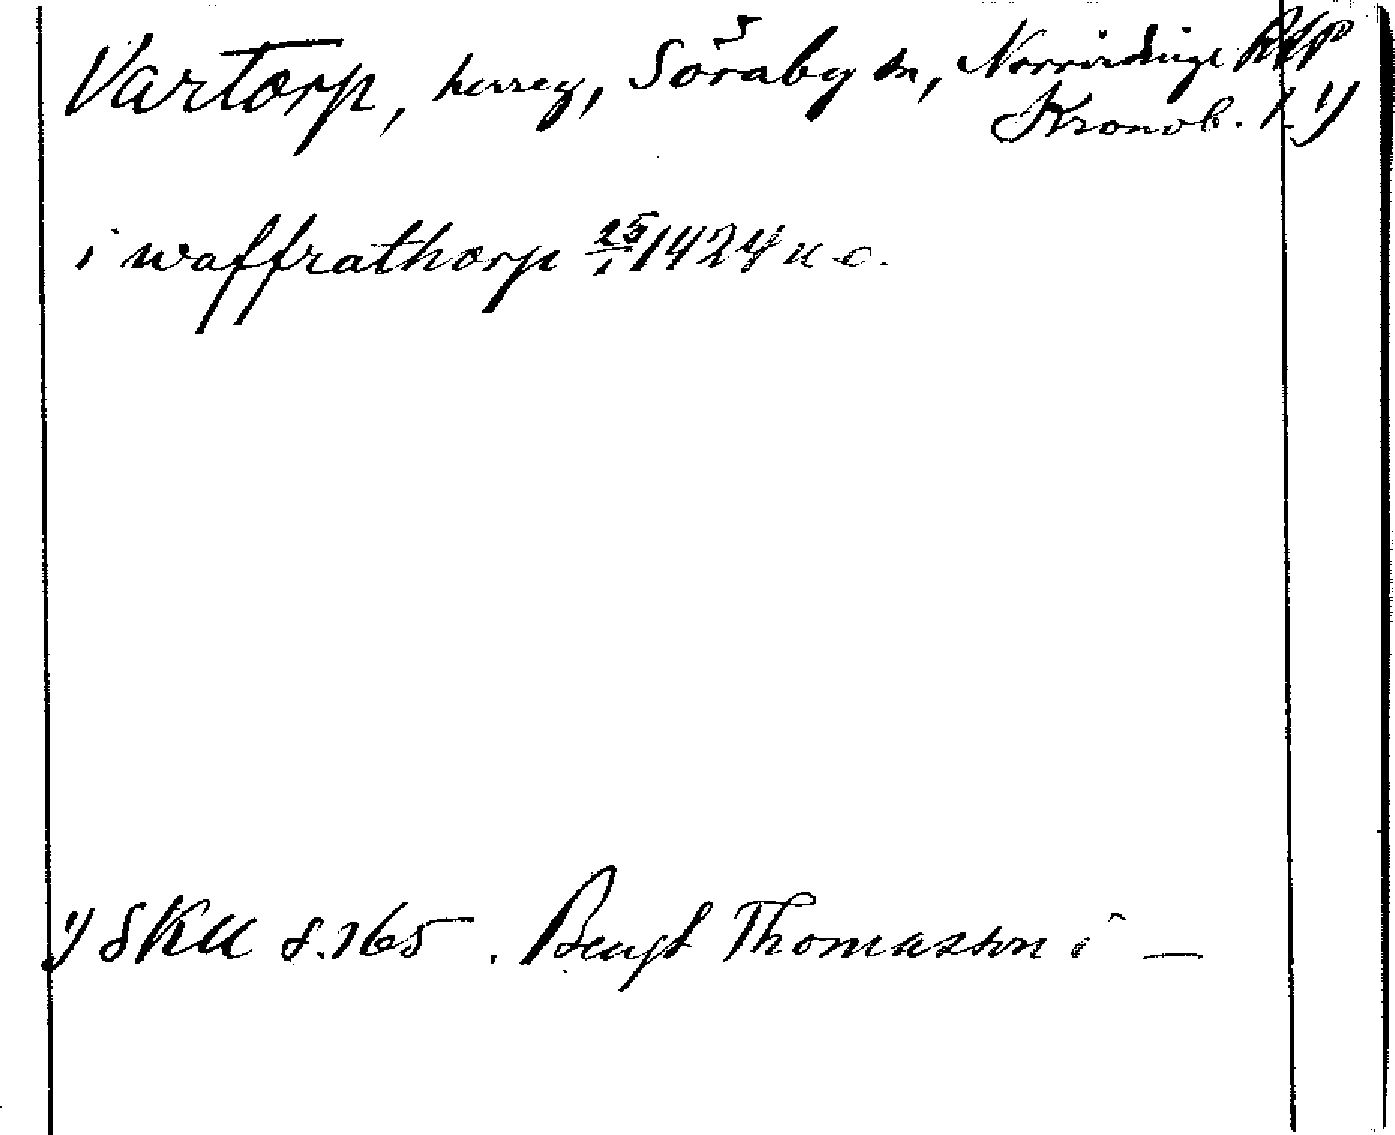 Vartorp, herreg, Söraby sn, Norrvidinge
Kronob. l. 1)
i waffrathorp 25/1 1424 u c.
1) SRU s. 165. Bengt Thomasson i —